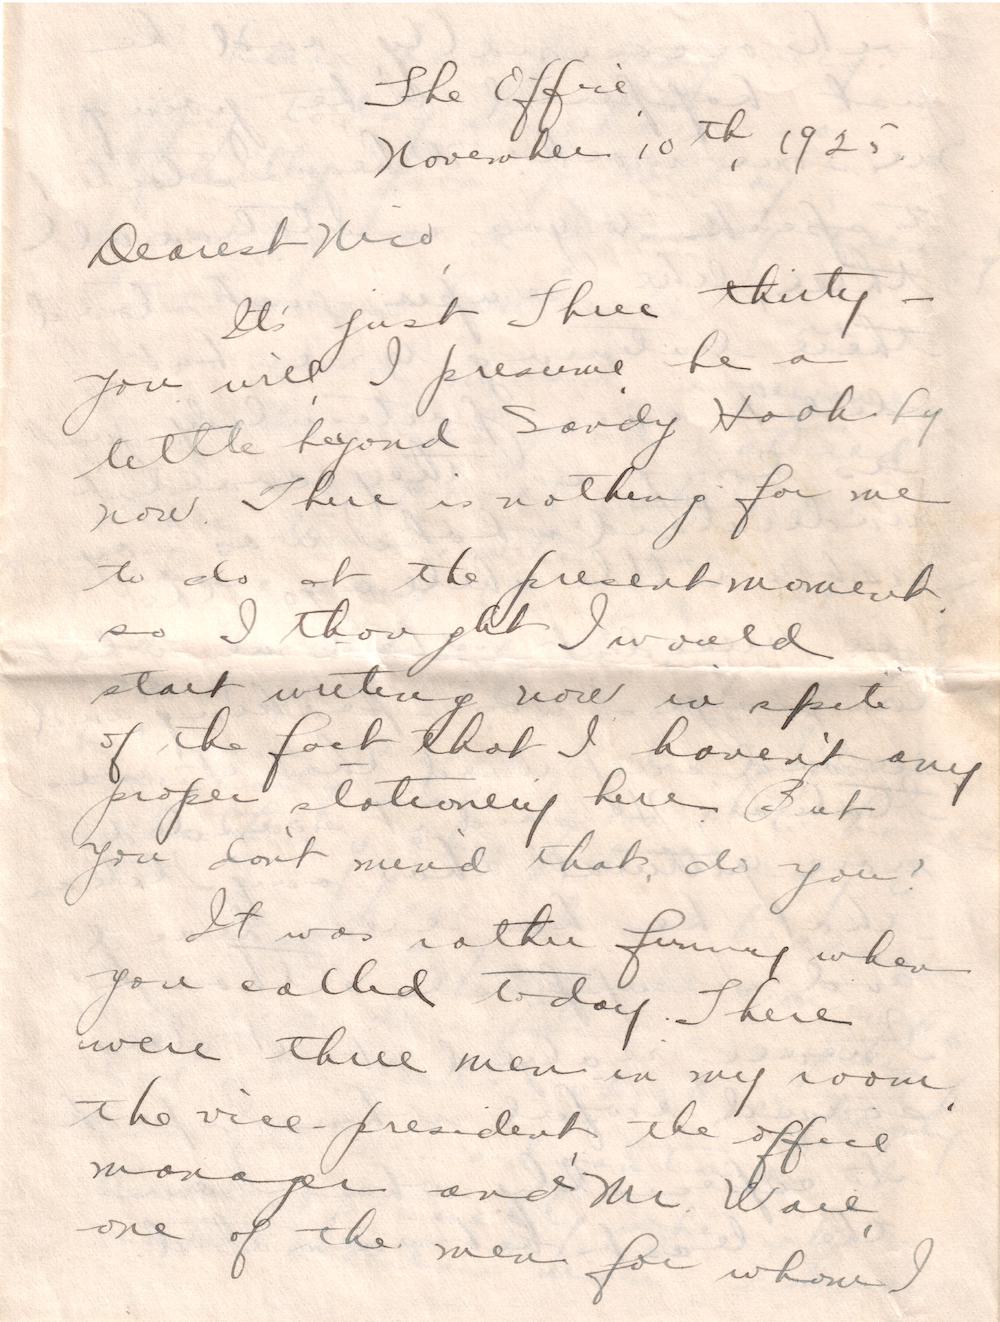 The Office,
November 10th, 1925.
Dearest Nico,
It's just Three thirty –
you will, I presume, be a
little beyond Sandy Hook by
now. There is nothing for me
to do at the present moment,
so I thought I would
start writing now in spite
of the fact that I haven't any
proper stationery here. But
you don't mind that, do you?
It was rather funny when
you called today. There
were three men in my room,
the vice-president the office
manager and Mr. Ware,
one of the men for whom I